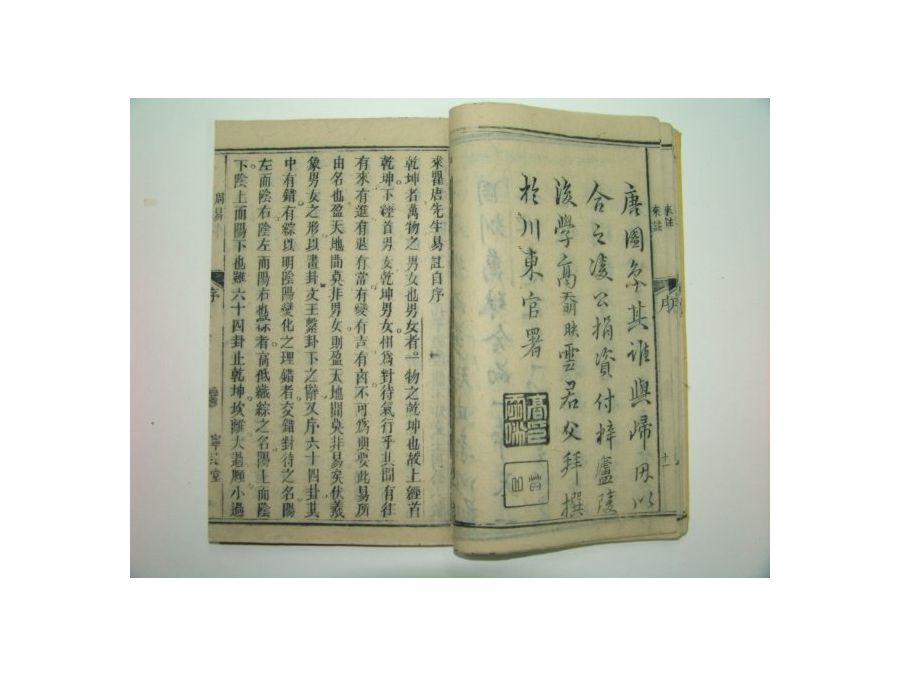 來註
來註
序
唐圖象其誰與歸因以
合之凌公捐資付梓廬陵
後學高奣映雲君父拜撰
於川東官署
來瞿唐先生易註自序
乾坤者萬物之男女也男女者一物之乾坤也故上經首
乾坤下經首男女乾坤男女相爲對待氣行乎其間有往
有來有進有退有常有變有吉有凶不可爲典要此易所
由名也盈天地間莫非男女則盈天地間莫非易矣伏羲
象男女之形以畫卦文王繫卦下之辭又序六十四卦其
中有錯有綜以明陰陽變化之理錯者交錯對待之名陽
左而陰右陰左而陽右也綜者高低織綜之名陽上而陰
下陰上而陽下也雖六十四卦止乾坤坎離大過頤小過
周易
序
寧
堂